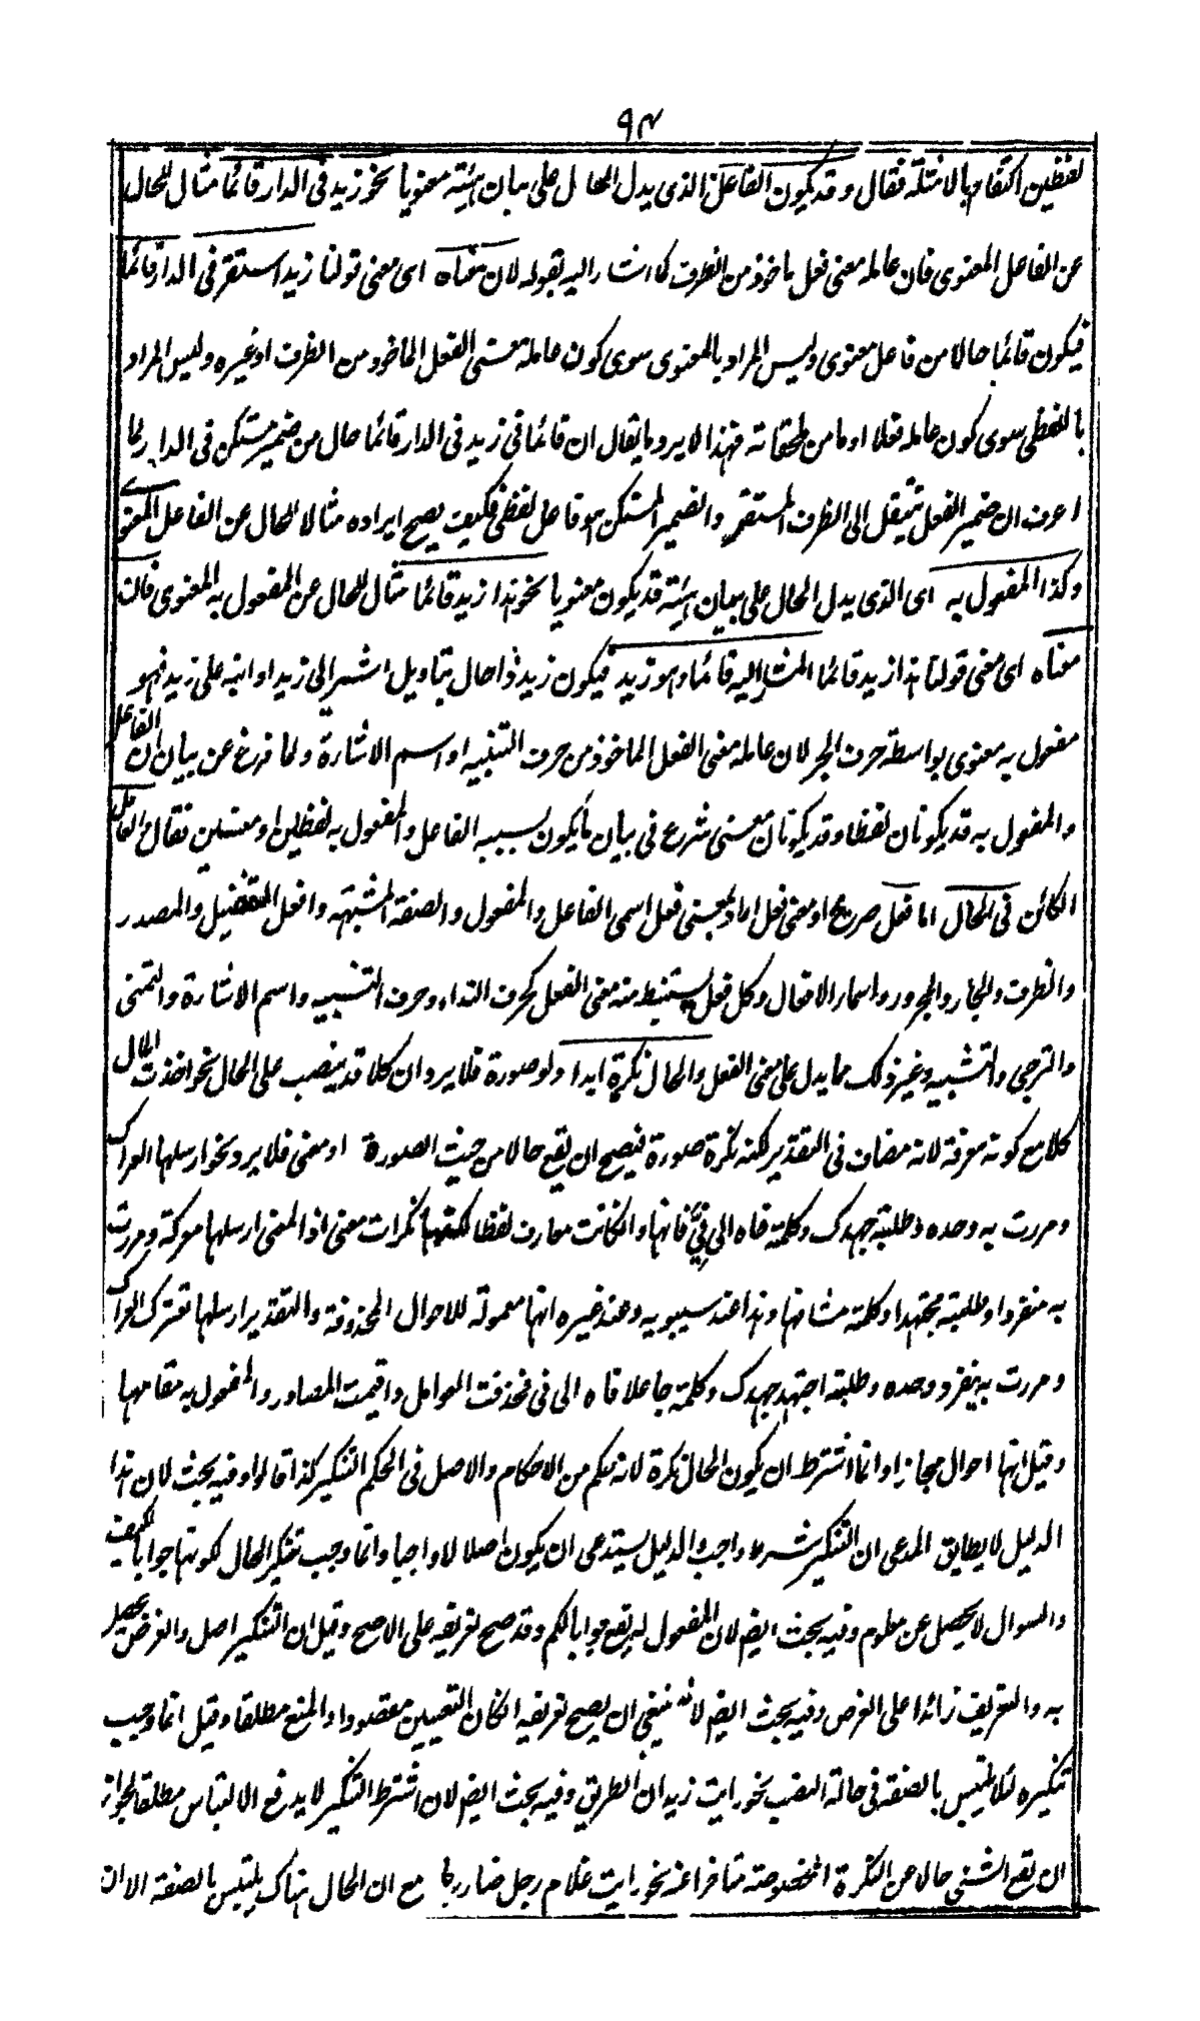 ٩٤
لفظين اكتفاء بالامثلة فقال وقد يكون الفاعل الذى يدل الحال على بيان هيئته معنويا نحو زيد فى الدار قائما مثال للحال
عن الفاعل المعنوى فان عامله معنى فعل ماخوذ من الظرف كما اشار اليه بقوله لان معناه اى معنى قولنا زيد استقر فى الدار قائما
فيكون قائما حالا من فاعل معنوى وليس المراد بالمعنوى سوى كون عامله معنى الفعل الماخوذ من الظرف او غيره وليس المراد
باللفظى سوى كون عامله فعلا او ما من ملحقاته فهذا لا يرد ما يقال ان قائما فى زيد فى الدار قائما حال من ضمير مستكن فى الدار لما
اعرف ان ضمير الفعل ينتقل الى الظرف المستقر والضمير المستكن هو فاعل لفظى فكيف يصح ايراده مثالا للحال عن الفاعل المعنوى
وكذا المفعول به اى الذى يدل الحال على بيان هيئته قد يكون معنويا نحو هذا زيد قائما مثال للحال عن المفعول به المعنوى فان
معناه اى معنى قولنا هذا زيد قائما المشار اليه قائما وهو زيد فيكون زيد ذا حال بتاويل اشير الى زيد او انبه على زيد فهو
مفعول به معنوى بواسطة حرف الجر لان عامله معنى الفعل الماخوذ من حرف التنبيه او اسم الاشارة ولما فرغ عن بيان ان الفاعل
والمفعول به قد يكونان لفظا وقد يكونان معنى شرع فى بيان ما يكون بسببه الفاعل والمفعول به لفظين او معنيين فقال والعامل
الكائن فى الحال اما فعل صريح او معنى فعل اراد بمعنى فعل اسمى الفاعل والمفعول والصفة المشبهة وافعل التفضيل والمصدر
والظرف والجار والمجرور واسماء الافعال وكل فعل يستنبط منه معنى الفعل كحرف النداء وحرف التنبيه واسم الاشارة والتمنى
والترجى والتشبيه وغير ذلك مما يدل على معنى الفعل والحال نكرة ابدا ولو صورة فلا يرد ان كلا قد ينصب على الحال نحو اخذت المال
كلا مع كونه معرفة لانه مضاف فى التقدير لكنه نكرة صورة فيصح ان يقع حالا من حيث الصورة او معنى فلا يرد نحو ارسلها العراك
ومررت به وحده وطلبته جهدك وكلمته فاه الى فىّ فانها وان كانت معارف لفظا لكنها نكرات معنى اذ المعنى ارسلها معركة ومررت
به منفردا وطلبته مجتهدا وكلمته مشافها وهذا عند سيبويه وعند غيره انها معمولة للاحوال المحذوفة والتقدير ارسلها تعترك العراك
ومررت به ينفرد وحده وطلبته اجتهد جهدك وكلمته جاعلا فاه الى فى فحذفت العوامل واقيمت المصادر والمفعول به مقامها
وقيل انها احوال مجازا وانما اشترط ان يكون الحال نكرة لانه حكم من الاحكام والاصل فى الحكم التنكير كذا قالوا وفيه بحث لان هذا
الدليل لا يطابق المدعى ان التنكير شرط واجب والدليل يستدعى ان يكون اصلا لا واجبا وانما وجب تنكير الحال لكونها جوابا لكيف
والسوال لا يحصل عن معلوم وفيه بحث ايضا لان المفعول له يقع جوابا لكم وقد صح تعريفه على الاصح وقيل ان التنكير اصل والغرض يحصل
به والتعريف زائدا على الغرض وفيه بحث ايضا لانه ينبغى ان يصح تعريفه ان كان التعيين مقصودا والمنع مطلقا وقيل انما وجب
تنكيره لئلا يلتبس بالصفة فى حالة النصب نحو رايت زيدان الطريق وفيه بحث ايضا لان اشتراط التنكير لا يدفع الالتباس مطلقا لجواز
ان يقع الشئ حالا عن النكرة المخصوصة متاخرا عنه نحو رايت غلام رجل ضاربا مع ان الحال هناك يلتبس بالصفة الا ان